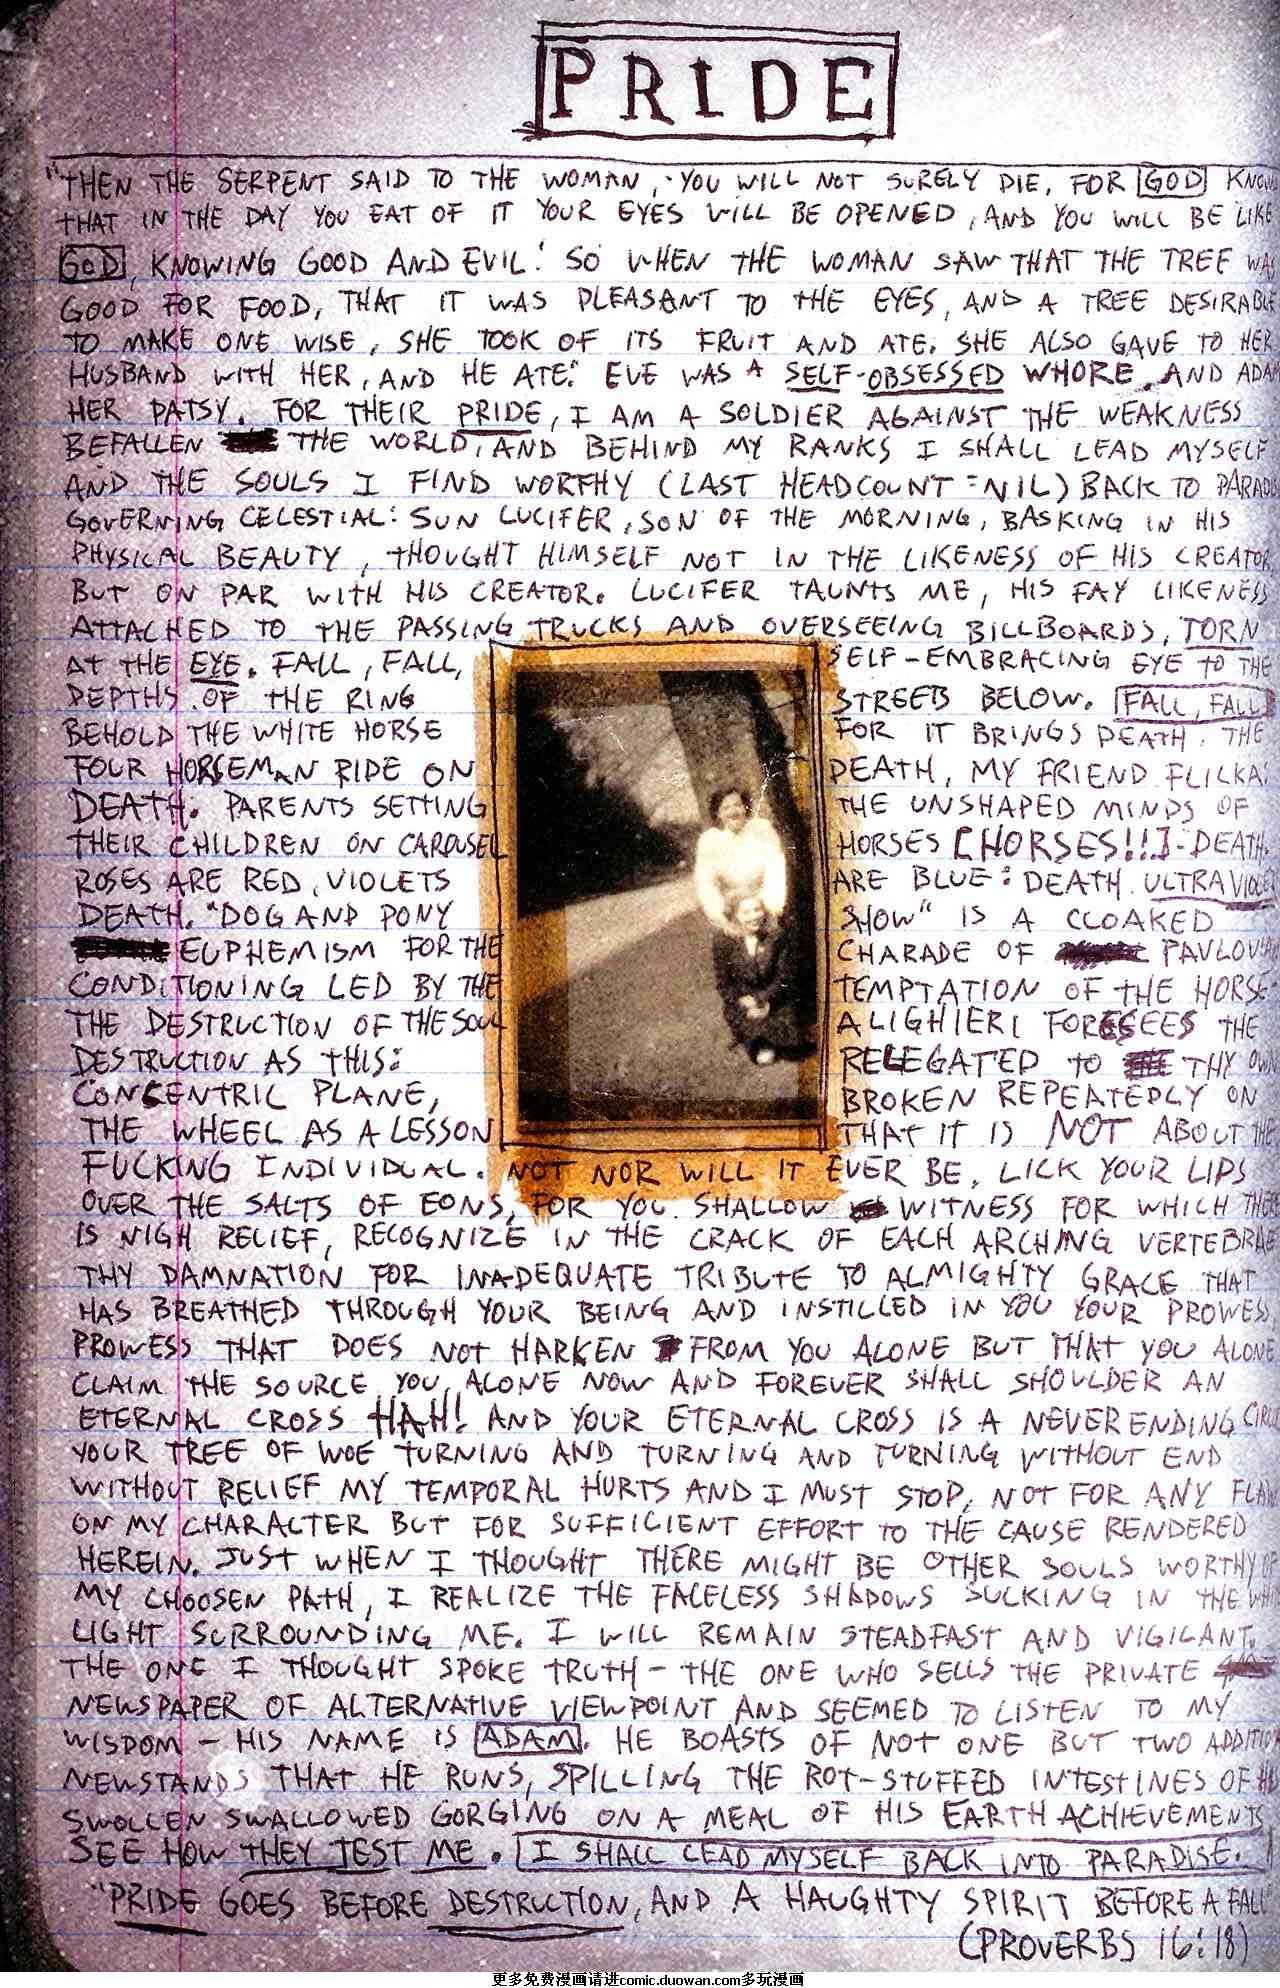 PRIDE
"THEN THE SERPENT SAID TO THE WOMAN, 'YOU WILL NOT SURELY DIE, FOR GOD KNOWS
THAT IN THE DAY YOU EAT OF IT YOUR EYES WILL BE OPENED, AND YOU WILL BE LIKE
GOD, KNOWING GOOD AND EVIL.' SO WHEN THE WOMAN SAW THAT THE TREE WAS
GOOD FOR FOOD, THAT IT WAS PLEASANT TO THE EYES, AND A TREE DESIRABLE
TO MAKE ONE WISE, SHE TOOK OF ITS FRUIT AND ATE. SHE ALSO GAVE TO HER
HUSBAND WITH HER, AND HE ATE." EVE WAS A SELF-OBSESSED WHORE. AND ADAM
HER PATSY. FOR THEIR PRIDE, I AM A SOLDIER AGAINST THE WEAKNESS
BEFALLEN THE WORLD, AND BEHIND MY RANKS I SHALL LEAD MYSELF
AND THE SOULS I FIND WORTHY (LAST HEADCOUNT = NIL) BACK TO
GOVERNING CELESTIAL: SUN LUCIFER, SON OF THE MORNING, BASKING IN HIS
PHYSICAL BEAUTY, THOUGHT HIMSELF NOT IN THE LIKENESS OF HIS CREATOR
BUT ON PAR WITH HIS CREATOR. LUCIFER TAUNTS ME, HIS FAY LIKENESS
ATTACHED TO THE PASSING TRUCKS AND OVERSEEING BILLBOARDS, TORN
AT THE EYE. FALL, FALL, SELF-EMBRACING EYE TO THE
DEPTHS OF THE RING STREETS BELOW. FALL, FALL
BEHOLD THE WHITE HORSE FOR IT BRINGS DEATH. THE
FOUR HORSEMAN RIDE ON DEATH, MY FRIEND FLICKA:
DEATH. PARENTS SETTING THE UNSHAPED MINDS OF
THEIR CHILDREN ON CAROUSEL HORSES [HORSES!!] - DEATH.
ROSES ARE RED, VIOLETS ARE BLUE: DEATH. ULTRAVIOLET
DEATH. "DOG AND PONY SHOW" IS A CLOAKED
EUPHEMISM FOR THE CHARADE OF PAVLOVIAN
CONDITIONING LED BY THE TEMPTATION OF THE HORSE-
THE DESTRUCTION OF THE SOUL ALIGHIERI FORESEES THE
DESTRUCTION AS THIS: RELEGATED TO THY OWN
CONCENTRIC PLANE, BROKEN REPEATEDLY ON
THE WHEEL AS A LESSON THAT IT IS NOT ABOUT THE
FUCKING INDIVIDUAL. NOT NOR WILL IT EVER BE, LICK YOUR LIPS
OVER THE SALTS OF EONS, FOR YOU SHALLOW WITNESS FOR WHICH THERE
IS NIGH RELIEF, RECOGNIZE IN THE CRACK OF EACH ARCHING VERTEBRAE
THY DAMNATION FOR INADEQUATE TRIBUTE TO ALMIGHTY GRACE THAT
HAS BREATHED THROUGH YOUR BEING AND INSTILLED IN YOU YOUR PROWESS,
PROWESS THAT DOES NOT HARKEN FROM YOU ALONE BUT THAT YOU ALONE
CLAIM THE SOURCE YOU ALONE NOW AND FOREVER SHALL SHOULDER AN
ETERNAL CROSS HAH! AND YOUR ETERNAL CROSS IS A NEVER ENDING
YOUR TREE OF WOE TURNING AND TURNING AND TURNING WITHOUT END
WITHOUT RELIEF MY TEMPORAL HURTS AND I MUST STOP, NOT FOR ANY FLAW
ON MY CHARACTER BUT FOR SUFFICIENT EFFORT TO THE CAUSE RENDERED
HEREIN. JUST WHEN I THOUGHT THERE MIGHT BE OTHER SOULS WORTHY OF
MY CHOOSEN PATH, I REALIZE THE FACELESS SHADOWS SUCKING IN THE
LIGHT SURROUNDING ME. I WILL REMAIN STEADFAST AND VIGILANT.
THE ONE I THOUGHT SPOKE TRUTH - THE ONE WHO SELLS THE PRIVATE
NEWSPAPER OF ALTERNATIVE VIEWPOINT AND SEEMED TO LISTEN TO MY
WISDOM - HIS NAME IS ADAM. HE BOASTS OF NOT ONE BUT TWO
NEWSTANDS THAT HE RUNS, SPILLING THE ROT-STUFFED INTESTINES OF HIS
SWOLLEN SWALLOWED GORGING ON A MEAL OF HIS EARTH ACHIEVEMENTS
SEE HOW THEY TEST ME. I SHALL LEAD MYSELF BACK INTO PARADISE.
"PRIDE GOES BEFORE DESTRUCTION, AND A HAUGHTY SPIRIT BEFORE A FALL"
(PROVERBS 16:18)
更多免费漫画请进comic.duowan.com多玩漫画